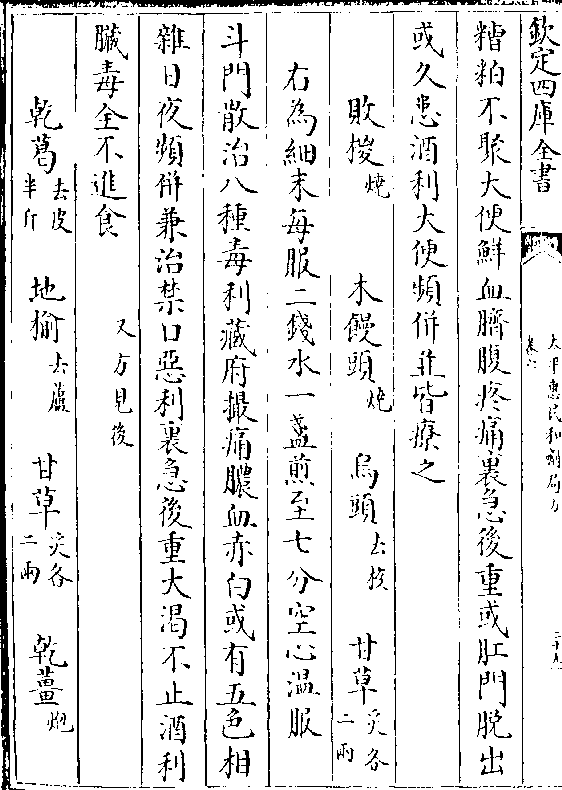 欽定四庫全書
太平惠民和劑局方
卷六
糟粕不聚大便鮮血臍腹疼痛裏急後重或肛門脱出
或久患酒利大便頻併并皆療之
敗椶燒 木饅頭炮 烏頭去核 甘草炙各二兩
右為細末每服二錢水一盞煎至七分空心温服
斗門散治八種毒利藏府撮痛膿血赤白或有五色相
雜日夜頻併兼治禁口惡利裏急後重大渴不止酒利
臟毒全不進食 又方見後
乾葛去皮半斤 地榆去蘆 甘草炙各二兩 乾薑炮